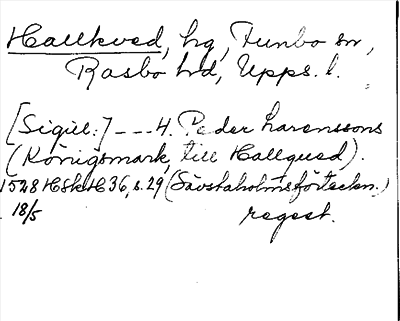 Hallkved, hg, Funbo sn,
Rasbo hd, Upps. l.
[Sigill:] - - - H. Peder Larenssons
(Königsmark, till Hallqued).
1528 HSH 36, s. 29 (Sävstaholmsförteckn.)
18/5 regest.